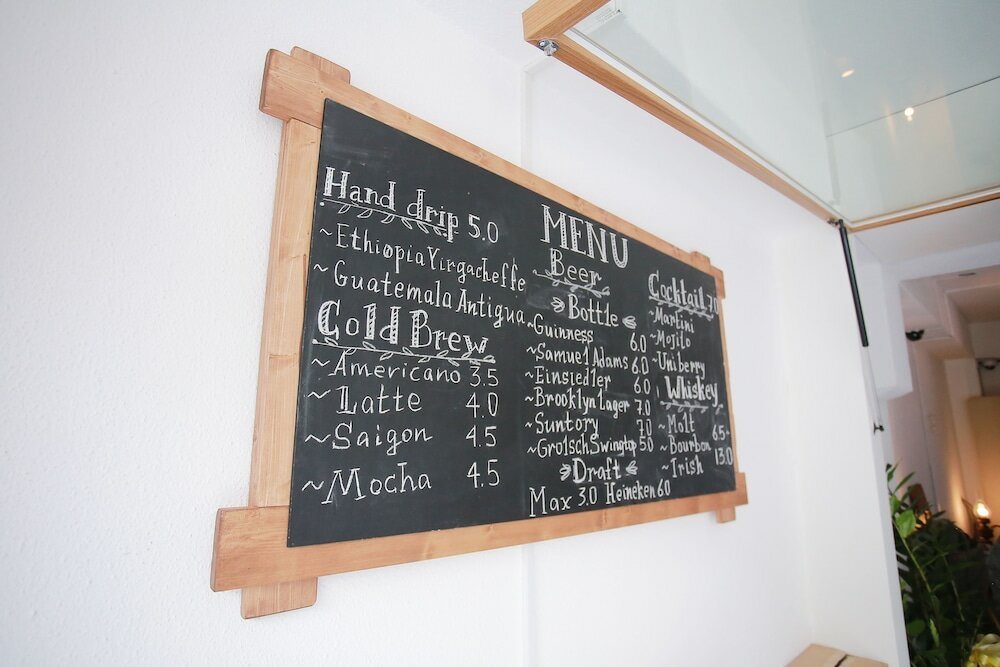 MENU
Hand drip 5.0
~Ethiopia Yirgacheffe
~Guatemala Antigua
Cold Brew
~Americano 3.5
~Latte 4.0
~Saigon 4.5
~Mocha 4.5
Beer
Bottle
~Guinness 6.0
~Samuel Adams 6.0
~Einsiedler 6.0
~Brooklyn Lager 7.0
~Suntory 7.0
~Grolsch Swingtop 5.0
Draft
Max 3.0 Heineken 6.0
Cocktail 7.0
~Martini
~Mojito
~Uniberry
Whiskey
~Molt 6.5~
~Bourbon 13.0
~Irish